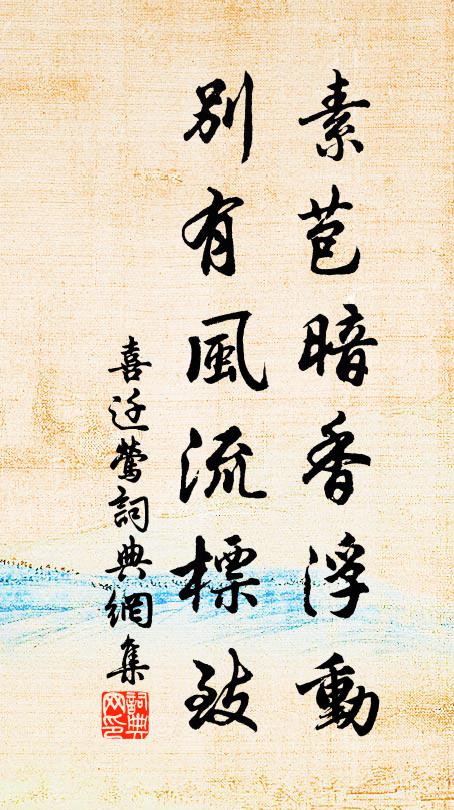 素苞暗香浮動
別有風流標致
喜迁鶯詞典網集
詞典网印